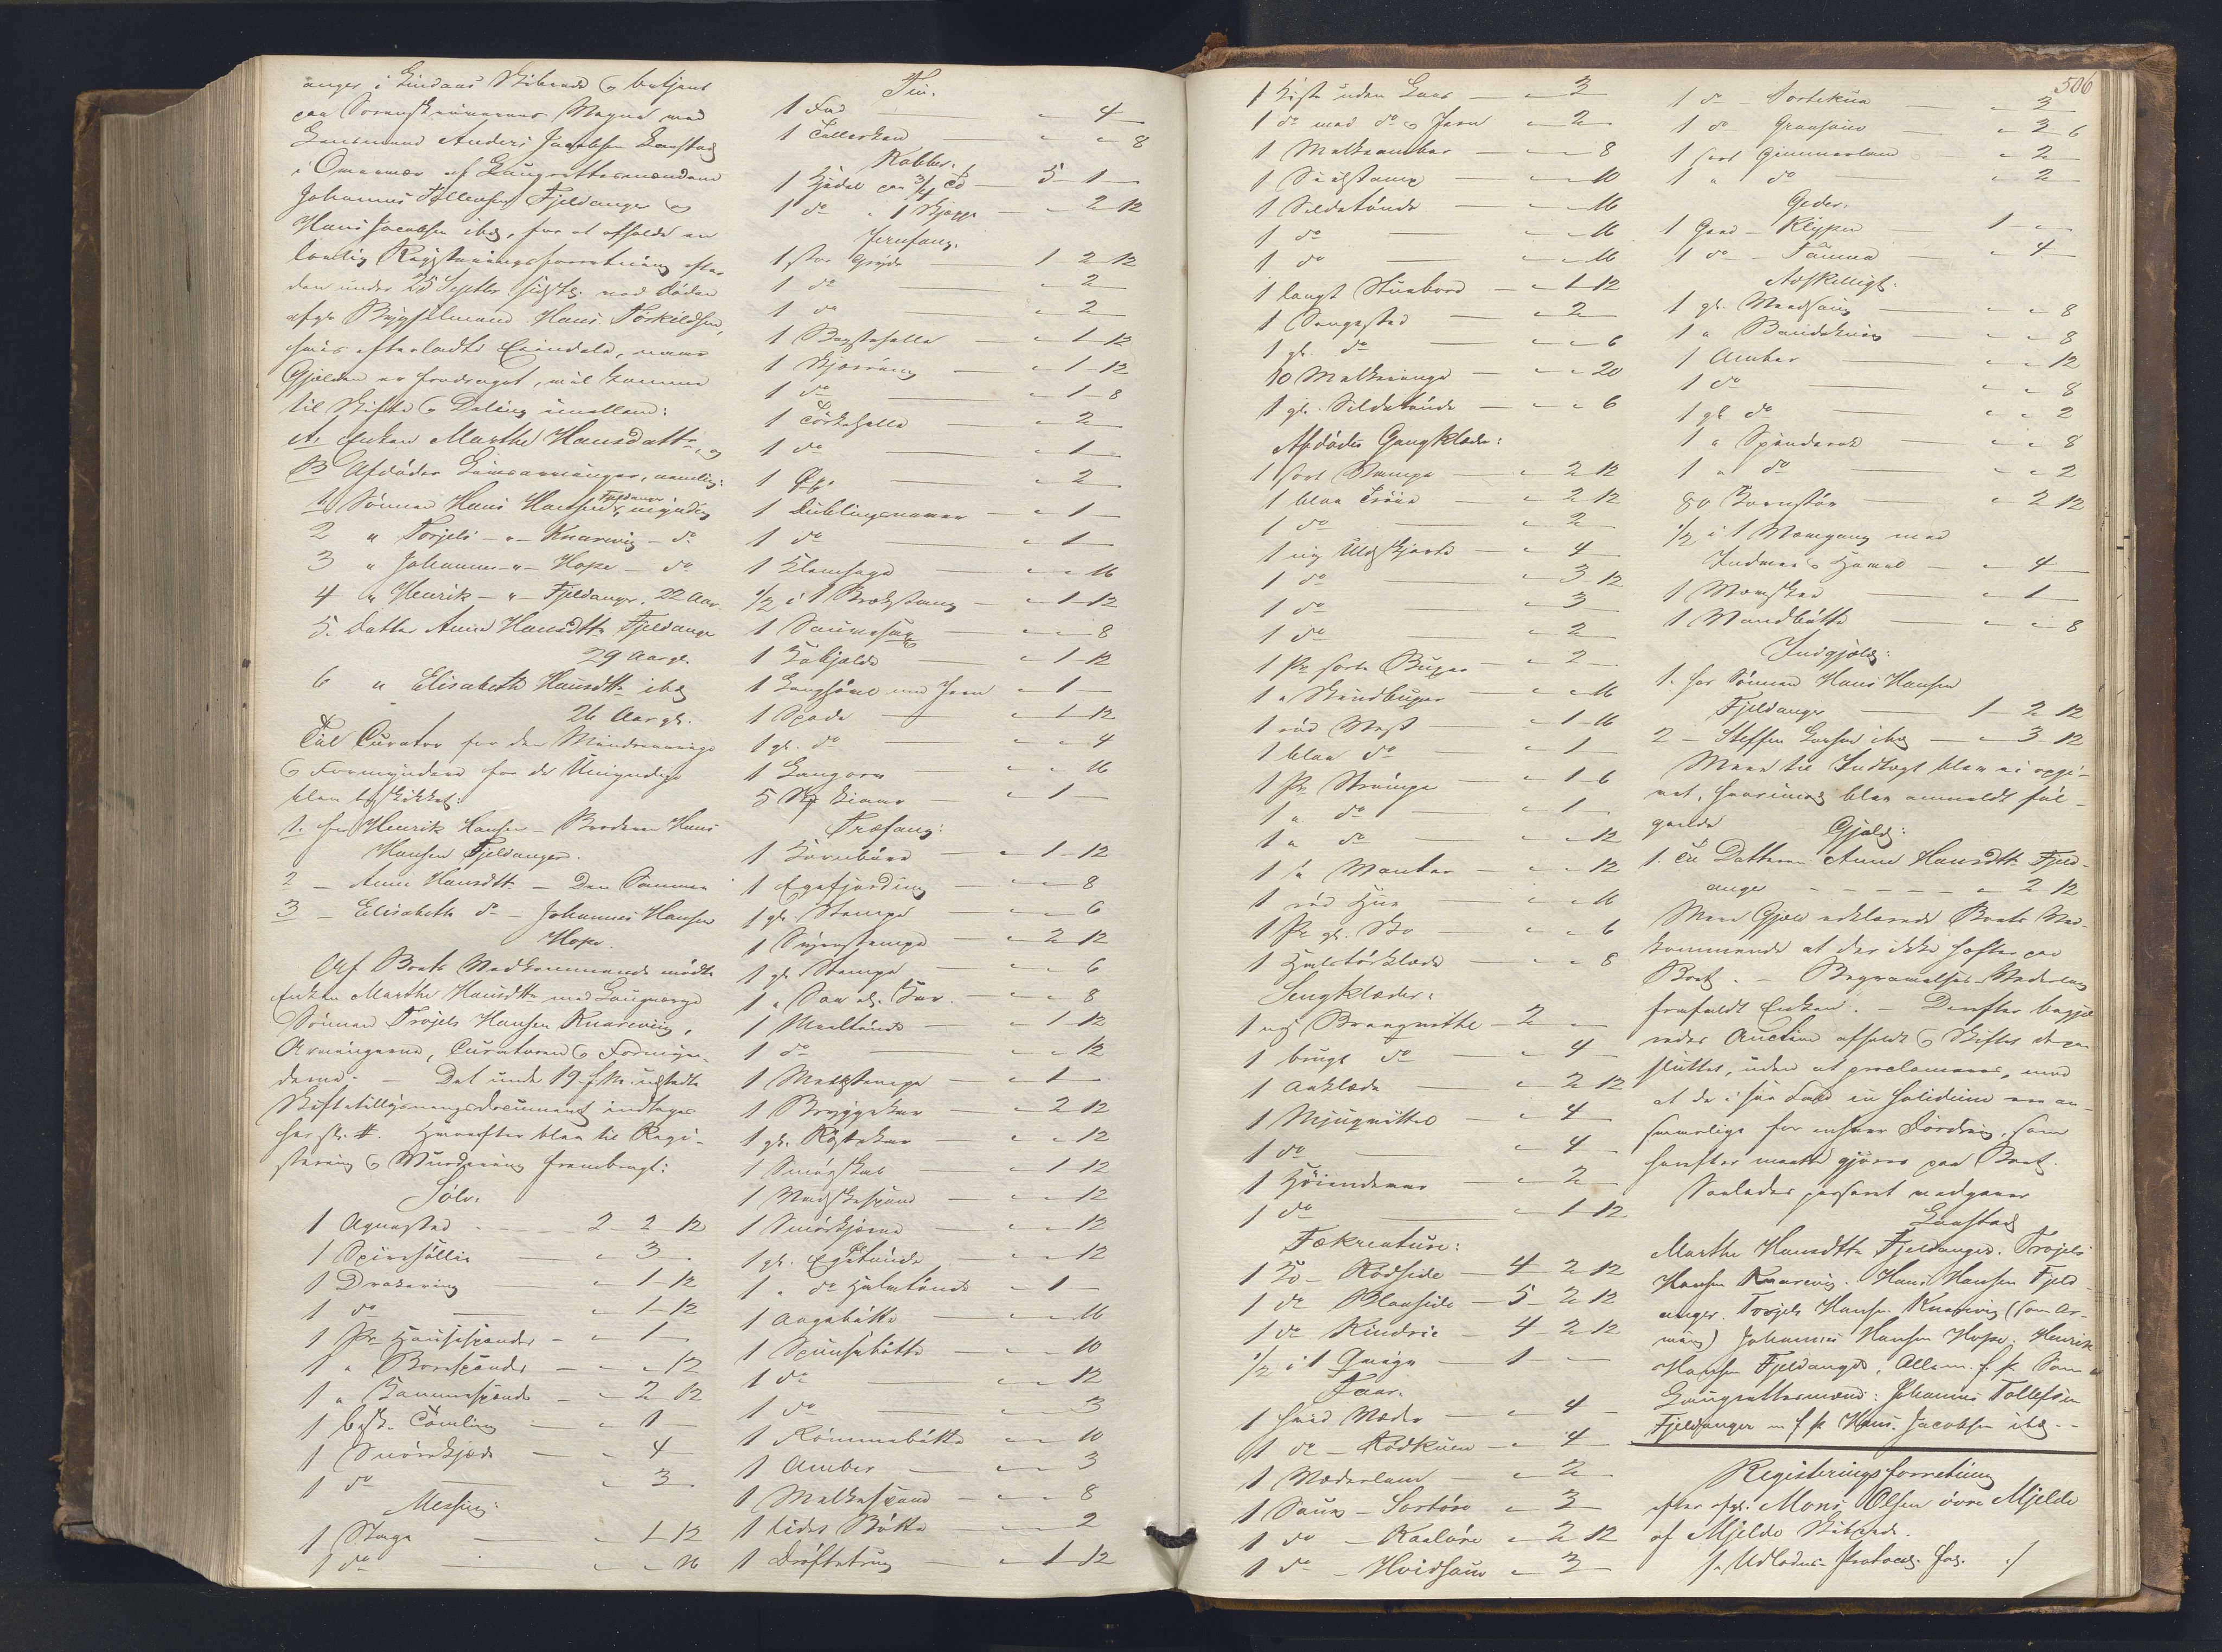 anger i Lindaas Skibrede & betjent
paa Sorenskriverens Vegne med
Lensmand Anders Jacobsen Lonstad
i Overvær af Laugrettesmændene
Johannes Tollevsen Fjeldanger og
Hans Jacobsen ibd, for at afholde en
lovlig Registreringsforretning efter
den under 25 Septbr. sidstl. ved Døden
afgl. Bygselmand Hans Torkildsen,
hvis efterladte Eiendele, naar
Gjælden er fradraget, vil komme
til Skifte & Deling imellem:
A, Enken Marthe Hansdatter, og
B Afdødes Livsarvinger, nemlig:
1, Sønnen Hans Hansen Fjeldanger, myndig
2 " Torjels - " - Knarevig - do
3 " Johannes - " - Hope - do
4 " Henrik - " - Fjeldanger, 22 Aar
5. Datter Anne Hansdtr Fjeldanger
29 Aar gl.
6 " Elisabeth Hansdtr ibd
26 Aar gl.
Til Curator for den Mindreaarige
& Formyndere for de Umyndige
blev beskikket:
1. for Henrik Hansen - Broderen Hans
Hansen Fjeldanger.
2 - Anne Hansdtr - Den Samme
3 - Elisabeth do - Johannes Hansen
Hope.
Af Boets Vedkommende mødte
Enken Marthe Hansdtr med Laugværge
Sønnen Trojels Hansen Knarevig,
Arvingerne, Curatoren & Formyn-
derne. - Det under 19 f. M. udstedte
Skiftetillysningsdocument indtages
her sk. #. Hvorefter blev til Regi-
strering & Vurdering frembragt:
Sølv.
1 Agnested - 2 - 2 - 12
1 Spiresøllie " 3 -
1 Drakering " 1 - 12
1 do " 1 - 12
1 Pr. Hansespænder - " 1 -
1 " Borespænder - " " 12
1 " Lommespænde - " 2 12
1 besk. Tømling - " 1 -
1 Snørekjæde - " 4
1 do " 3
Messing:
1 Stage " 1 - 12
1 do " " 16
Tin.
1 Fad " 4
1 Tallerken " " 8
Kobber.
1 Kjedel paa 3/4 Td - 5 - 1 -
1 do " 1 Skjeppe - " 2 12
Jernfang.
1 stor Gryde - 1 - 2 - 12
1 do " 2
1 do " 2
1 Bagstehelle " 1 - 12
1 Skjæring " 1 - 12
1 do " 1 - 8
1 Tørkehelle " 2
1 do " 1
1 Øx. " 2
1 Dublingsnaver " 1
1 do " 1
1 Klemsage " " 16
1/2 i 1 Brækstang - " 1 - 12
1 Sausesax " " 8
1 Kakjælde " 1 - 12
1 Langhøvl med Jern " 1 -
1 Spade " 1 - 12
1 gl. do " " 4
1 Langorv " " 16
5 Stk Liaar " 1 -
Træfang:
1 Kornbøre " 1 - 12
1 Egefjerding " " 8
1 gl. Stampe " " 6
1 " 2 - 12
1 gl. Stampe " " 6
1 " " 8
1 Meeltønde " 1 - 12
1 do " " 12
1 Melkstampe " 1 -
1 Bryggekar " 2 12
1 gl. Røstekar " " 12
1 Smørskab " 1 - 12
1 Medskespand " " 12
1 Smørkjerne " " 12
1 gl. Egetønde " " 12
1 " do Halvtønde - 1 -
1 Angebøtte " " 16
1 Spunsebøtte " " 10
1 do " " 12
1 do " " 3
1 Rømmebøtte " " 10
1 Ambar " " 3
1 Melkespand " " 8
1 liden Bøtte " " 2
1 Drøftetrug " 1 - 12
506
1 Kiste uden Laas " 3
1 do med do & Jern " 2
1 Melkeambar " " 8
1 " " 10
1 Sildetønde " " 16
1 do " " 16
1 do " " 16
1 langt Stuebord " 1 12
1 Sengested " 2
1 gl. do " " 6
10 Melkeringe " " 20
1 gl. Sildetønde " " 6
Afdødes Gangklæder:
1 sort " 2 12
1 blaa Trøie " 2 12
1 do " 2
1 ny Uldskjorte " 4
1 do " 3 12
1 do " 3
1 do " 2
1 Pr sorte Buxer " 2
1 " Skindbuxer " " 16
1 rød Vest " 1 - 16
1 blaa do " 1
1 Pr Strømpe " 1 - 6
1 " do " 1
1 " do " " 12
1 " Vanter " " 12
1 rød Hue " " 16
1 Pr gl. Sko " " 6
1 Halstørklæde " " 8
Sengklæder:
1 ny Brangvitte - 2 "
1 brugt do " 4
1 Aaklæde " 2 12
1 Mjugvittel " 4
1 do " 4
1 Høiendevaar " 2
1 do " 1 - 12
Fækreature:
1 Ko - Rødside - 4 2 12
1 do Blanside - 5 - 2 12
1 do Rindrei - 4 - 2 12
1/2 i 1 Qvige - 1 -
Faar.
1 hvid Væder " 4
1 do - Rødkuen " 4
1 Væderlam " 2
1 Sau - Sortøre " 3
1 do - Kaaløre " 2 12
1 do - Hvidsau " 3
1 do - Sortekua " 3
1 do Graasau " 3 6
1 sort Gimmerlam " 2
1 " do " 2
Geder.
1 Geed - Klypen 1 -
1 do - Tamma " 4
Adskilligt.
1 gl. " " 8
1 " Baandkniv " " 8
1 Ambar " " 12
1 do " " 8
1 gl do " " 2
1 " Spinderok " " 8
1 " do " " 2
80 Kornstør " 2 12
1/2 i 1 Vævgang med
& Hamel - " 4
1 Vævskee " 1
1 Vandbøtte " " 8
Indgjæld:
1. hos Sønnen Hans Hansen
Fjeldanger 1 - 2 12
2 - Steffen Larsen ibd " 3 12
Mere til Indtægt blev ei opgi-
vet, hvorimod blev anmeldt føl-
gende Gjæld:
1. Til Datteren Anne Hansdtr Fjeld-
anger - - - - - " 2 12
Mere Gjæld erklærede Boets Ved-
kommende at der ikke hefter paa
Boet. - Begravelses-Vederlag
frafaldt Enken. - Derefter begjæ-
redes Auction afholdt & Skiftet derpaa
sluttet, uden at proclameres, mod
at de i saa Fald in solidum ere an-
svarlige for enhver Fordring, som
herefter maatte gjøres paa Boet.
Saaledes passeret vedgaaer
Lonstad
Marthe Hansdtr Fjeldanger. Trojels
Hansen Knarevig. Hans Hansen Fjeld-
anger. Torjels Hansen Knarevig (som Ar-
ving) Johannes Hansen Hope. Henrik
Hansen Fjeldanger, Alle m. f. P. Som
Laugrettesmænd: Johannes Tollefsen
Fjeldanger m f P Hans Jacobsen ibd. - -
Registreringsforretning
efter afgl. Mons Olsen øvre Mjelde
af Mjelde Skibrede.
/: Udlodns Protocol. fol. :/